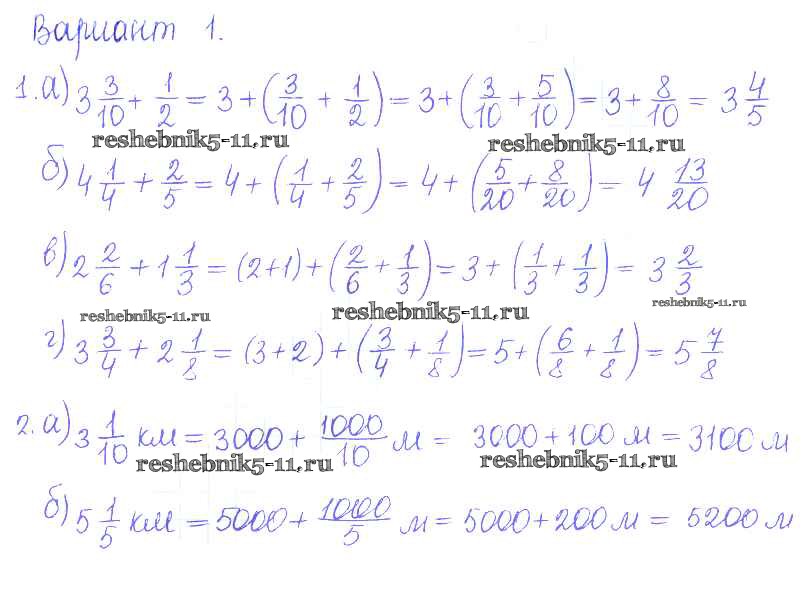 Вариант 1.
1. а) 3 3/10 + 1/2 = 3 + (3/10 + 1/2) = 3 + (3/10 + 5/10) = 3 + 8/10 = 3 4/5
reshebnik5-11.ru reshebnik5-11.ru
б) 4 1/4 + 2/5 = 4 + (1/4 + 2/5) = 4 + (5/20 + 8/20) = 4 13/20
в) 2 2/6 + 1 1/3 = (2+1) + (2/6 + 1/3) = 3 + (1/3 + 1/3) = 3 2/3
reshebnik5-11.ru reshebnik5-11.ru reshebnik5-11.ru
г) 3 3/4 + 2 1/8 = (3+2) + (3/4 + 1/8) = 5 + (6/8 + 1/8) = 5 7/8
2. а) 3 1/10 км = 3000 + 1000/10 м = 3000 + 100 м = 3100 м
reshebnik5-11.ru reshebnik5-11.ru
б) 5 1/5 км = 5000 + 1000/5 м = 5000 + 200 м = 5200 м